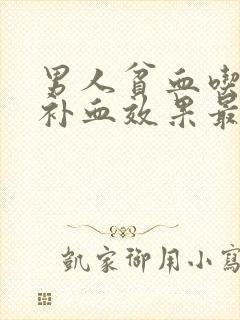 男人贫血喫
补血效果最
凯家御用小寫